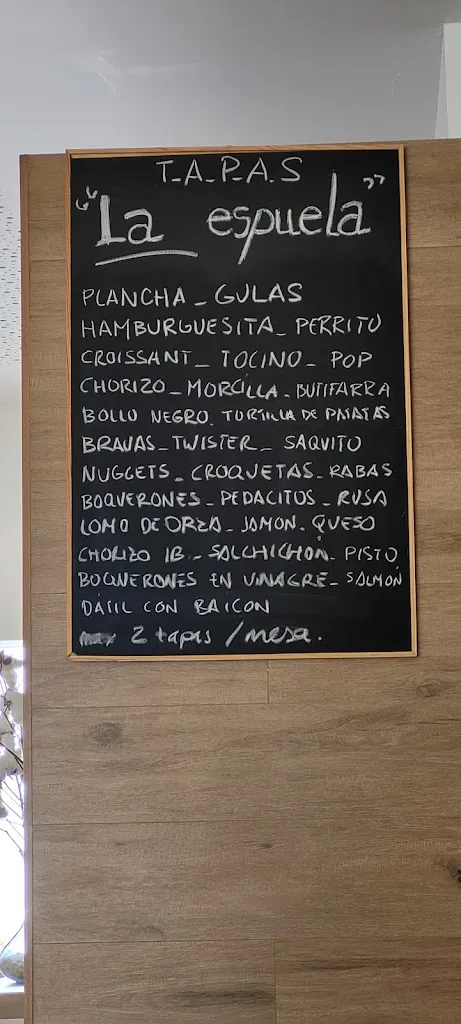 T-A-P-A-S
"La espuela"
PLANCHA - GULAS
HAMBURGUESITA - PERRITO
CROISSANT - TOCINO - POP
CHORIZO - MORCILLA - BUTIFARRA
BOLLO NEGRO. TORTILLA DE PATATAS
BRAVAS - TWISTER - SAQUITO
NUGGETS - CROQUETAS - RABAS
BOQUERONES - PEDACITOS - RUSA
LOMO DE ORZA - JAMON. QUESO
CHORIZO IB - SALCHICHÓN - PISTO
BOQUERONES EN VINAGRE - SALMÓN
DÁTIL CON BAICON
max 2 tapas / mesa.